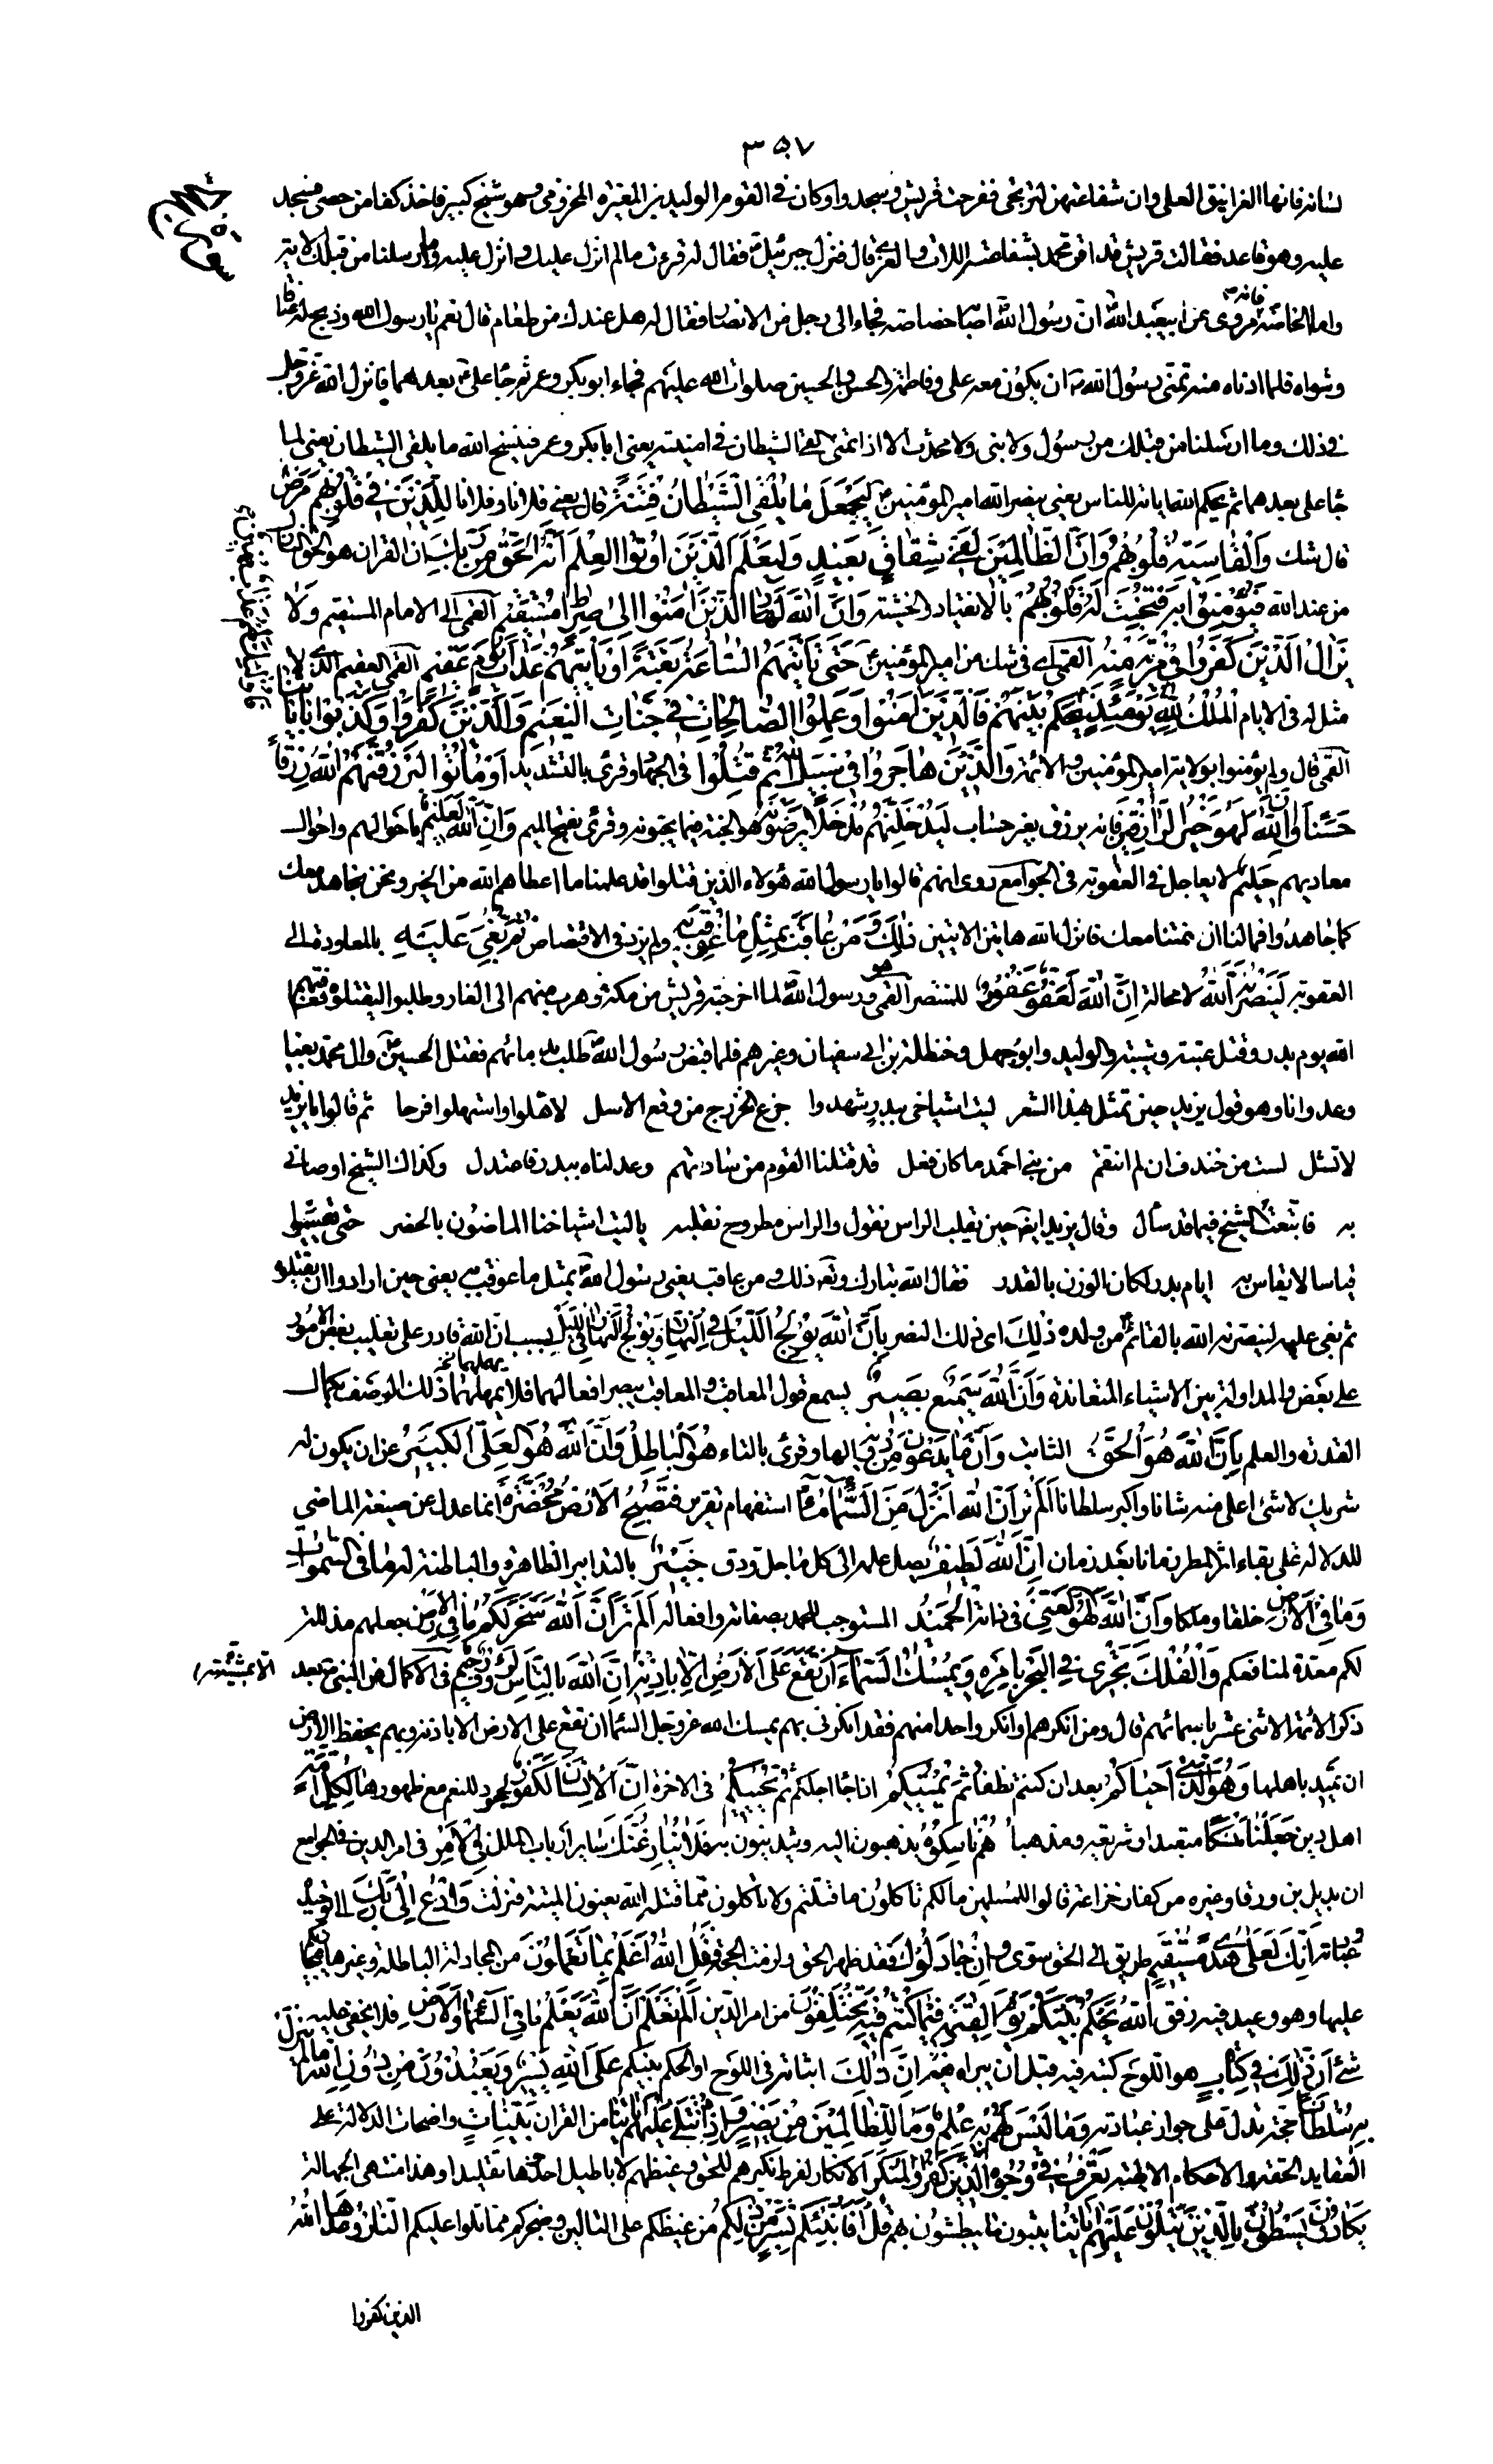 ٣٥٧
لسانه فانها الغرانيق العلى وان شفاعتهن لترتجى ففرحت قريش وسجدوا وكان في القوم الوليد بن المغيرة المخزومى وهو شيخ كبير فاخذ كفا من حصى فسجد
عليه وهو قاعد فقالت قريش قد اقر محمد بشفاعة اللات والعزى قال فنزل جبرئيل فقال له قرءت ما لم انزل عليك وانزل عليه وما ارسلنا من قبلك الاية
واما الخاصة فانه روى عن ابيعبد الله ان رسول الله اصابه خصاصة فجاء الى رجل من الانصار فقال له هل عندك من طعام قال نعم يا رسول الله وذبح له عناقا
وشواه فلما ادناه منه تمنى رسول الله ص ان يكون معه على وفاطمة والحسن والحسين صلوات الله عليهم فجاء ابو بكر وعمر ثم جاء على ع بعدهما فانزل الله عز وجل
في ذلك وما ارسلنا من قبلك من رسول ولا نبى ولا محدث الا اذا تمنى القى الشيطان في امنيته يعنى ابا بكر وعمر فينسخ الله ما يلقى الشيطان يعنى لما
جاء على بعدهما ثم يحكم الله اياته للناس يعنى ينصر الله امير المؤمنين لِيَجْعَلَ مَا يُلْقِى الشَّيْطَانُ فِتْنَةً قال يعنى فلانا وفلانا لِلَّذِينَ فِي قُلُوبِهِمْ مَرَضٌ
قال شك وَالْقَاسِيَةِ قُلُوبُهُمْ وَاِنَّ الظَّالِمِينَ لَفِي شِقَاقٍ بَعِيدٍ وَلِيَعْلَمَ الَّذِينَ اُوتُوا الْعِلْمَ اَنَّهُ الْحَقُّ مِنْ رَبِّكَ ان القران هو الحق النازل
من عند الله فَيُؤْمِنُوا بِهِ فَتُخْبِتَ لَهُ قُلُوبُهُمْ بالانقياد والخشية وَاِنَّ اللهَ لَهَادِ الَّذِينَ اٰمَنُوا اِلىٰ صِرَاطٍ مُسْتَقِيمٍ القمى الى الامام المستقيم وَلَا
يَزَالُ الَّذِينَ كَفَرُوا فِي مِرْيَةٍ مِنْهُ القمى اى في شك من امير المؤمنين حَتّٰى تَاْتِيَهُمُ السَّاعَةُ بَغْتَةً اَوْ يَاْتِيَهُمْ عَذَابُ يَوْمٍ عَقِيمٍ القمى العقيم الذى لا
مثل له في الايام اَلْمُلْكُ يَوْمَئِذٍ لِلّٰهِ يَحْكُمُ بَيْنَهُمْ فَالَّذِينَ اٰمَنُوا وَعَمِلُوا الصَّالِحَاتِ فِي جَنَّاتِ النَّعِيمِ وَالَّذِينَ كَفَرُوا وَكَذَّبُوا بِاٰيَاتِنَا
القمى قال ولم يؤمنوا بولاية امير المؤمنين والائمة وَالَّذِينَ هَاجَرُوا فِي سَبِيلِ اللهِ ثُمَّ قُتِلُوا في الجهاد وقرئ بالتشديد اَوْ مَاتُوا لَيَرْزُقَنَّهُمُ اللهُ رِزْقًا
حَسَنًا وَاِنَّ اللهَ لَهُوَ خَيْرُ الرَّازِقِينَ فانه يرزق بغير حساب لَيُدْخِلَنَّهُمْ مُدْخَلًا يَرْضَوْنَهُ هو الجنة فيها يحبونه وقرئ بفتح الميم وَاِنَّ اللهَ لَعَلِيمٌ باحوالهم واحوال
معاديهم حَلِيمٌ لا يعاجل في العقوبة في الجوامع روى انهم قالوا يا رسول الله هؤلاء الذين قتلوا قد علمنا ما اعطاهم الله من الخير ونحن نجاهد معك
كما جاهدوا فما لنا ان متنا معك فانزل الله هاتين الايتين ذٰلِكَ وَمَنْ عَاقَبَ بِمِثْلِ مَا عُوقِبَ بِهِ ولم يزد في الاقتصاص ثُمَّ بُغِيَ عَلَيْهِ بالمعاودة الى
العقوبة لَيَنْصُرَنَّهُ اللهُ لا محالة اِنَّ اللهَ لَعَفُوٌّ غَفُورٌ للمنتصر القمى هو رسول الله لما اخرجته قريش من مكة وهرب منهم الى الغار وطلبوا ليقتلوه فعاقبهم
الله يوم بدر وقتل عتبة وشيبة والوليد وابو جهل وحنظلة بن ابى سفيان وغيرهم فلما قبض رسول الله طلب بدمائهم فقتل الحسين وال محمد بغيا
وعدوانا وهو قول يزيد حين تمثل بهذا الشعر ليت اشياخى ببدر شهدوا جزع الخزرج من وقع الاسل لاهلوا واستهلوا فرحا ثم قالوا يا يزيد
لا تشل لست من خندف ان لم انتقم من بنى احمد ما كان فعل قد قتلنا القوم من ساداتهم وعدلناه ببدر فاعتدل وكذاك الشيخ اوصانى
به فاتبعت الشيخ فيما قد سأل وقال يزيد ايضا حين تقليب الراس نقول والراس مطروح نقلبه يا ليت اشياخنا الماضون بالحضر حتى يقيسوا
قياسا لا يقاس به ايام بدر لكان الوزن بالقدر فقال الله تبارك وتعالى ذلك ومن عاقب يعنى رسول الله بمثل ما عوقب به يعنى حين ارادوا ان يقتلوه
ثم بغى عليه لينصرنه الله بالقائم من ولده ذٰلِكَ اى ذلك النصر بِاَنَّ اللهَ يُولِجُ اللَّيْلَ فِي النَّهَارِ وَيُولِجُ النَّهَارَ فِي اللَّيْلِ بسبب ان الله قادر على تغليب بعض الامور
على بعض والمداولة بين الاشياء المتعاندة وَاَنَّ اللهَ سَمِيعٌ بَصِيرٌ يسمع قول المعاقب والمعاقب يبصر افعالهما فلا يمهلهما ذٰلك الوصف بكمال
القدرة والعلم بِاَنَّ اللهَ هُوَ الْحَقُّ الثابت وَاَنَّ مَا يَدْعُونَ مِنْ دُونِهِ الها وقرئ بالتاء هُوَ الْبَاطِلُ وَاَنَّ اللهَ هُوَ الْعَلِيُّ الْكَبِيرُ عن ان يكون له
شريك لا شئ اعلى منه شانا واكبر سلطانا اَلَمْ تَرَ اَنَّ اللهَ اَنْزَلَ مِنَ السَّمَاءِ مَاءً استفهام تقرير فَتُصْبِحُ الْاَرْضُ مُخْضَرَّةً انما عدل عن صيغة الماضى
للدلالة على بقاء اثر المطر زمانا بعد زمان اِنَّ اللهَ لَطِيفٌ يصل علمه الى كل ما جل ودق خَبِيرٌ بالتدابير الظاهرة والباطنة لَهُ مَا فِي السَّمٰوَاتِ
وَمَا فِي الْاَرْضِ خلقا وملكا وَاِنَّ اللهَ لَهُوَ الْغَنِيُّ في ذاته الْحَمِيدُ المستوجب للحمد بصفاته وافعاله اَلَمْ تَرَ اَنَّ اللهَ سَخَّرَ لَكُمْ مَا فِي الْاَرْضِ جعلهم مذللة
لكم معدة لمنافعكم وَالْفُلْكَ تَجْرِى فِي الْبَحْرِ بِاَمْرِهِ وَيُمْسِكُ السَّمَاءَ اَنْ تَقَعَ عَلَى الْاَرْضِ اِلَّا بِاِذْنِهِ اِنَّ اللهَ بِالنَّاسِ لَرَؤُفٌ رَحِيمٌ في الاكمال عن النبى ص بعد
ذكر الائمة الاثنى عشر باسمائهم قال ومن انكرهم او انكر واحدا منهم فقد انكرنى بهم يمسك الله عز وجل السماء ان تقع على الارض الا باذنه وبهم يحفظ الارض
ان تميد باهلها وَهُوَ الَّذِى اَحْيَاكُمْ بعد ان كنتم نطفا ثُمَّ يُمِيتُكُمْ اذا جاء اجلكم ثُمَّ يُحْيِيكُمْ في الاخرة اِنَّ الْاِنْسَانَ لَكَفُورٌ لجحود للنعم مع ظهورها لِكُلِّ اُمَّةٍ
اهل دين جَعَلْنَا مَنْسَكًا متعبدا وشريعة ومذهبا هُمْ نَاسِكُوهُ يذهبون اليه ويتدينون به فَلَا يُنَازِعُنَّكَ سائر ارباب الملل فِي الْاَمْرِ في امر الدين في الجوامع
ان بديل بن ورقا وغيره من كفار خزاعة قالوا للمسلمين ما لكم تاكلون ما قتلتم ولا تاكلون مما قتله الله يعنون الميتة فنزلت وَادْعُ اِلىٰ رَبِّكَ الى توحيده
وعبادته اِنَّكَ لَعَلىٰ هُدًى مُسْتَقِيمٍ طريق الى الحق سوى وَاِنْ جَادَلُوكَ فقد ظهر الحق ولزمت الحجة فَقُلِ اللهُ اَعْلَمُ بِمَا تَعْمَلُونَ من المجادلة الباطلة وغيرها
عليها وهو وعيد فيه رفق اَللهُ يَحْكُمُ بَيْنَكُمْ يَوْمَ الْقِيٰمَةِ فِيمَا كُنْتُمْ فِيهِ تَخْتَلِفُونَ من امر الدين اَلَمْ تَعْلَمْ اَنَّ اللهَ يَعْلَمُ مَا فِي السَّمَاءِ وَالْاَرْضِ فلا يخفى عليه
شئ اِنَّ ذٰلِكَ فِي كِتَابٍ هو اللوح كتبه فيه قبل ان يبراه اِنَّ ذٰلِكَ اثباته في اللوح او الحكم بينكم عَلَى اللهِ يَسِيرٌ وَيَعْبُدُونَ مِنْ دُونِ اللهِ مَا لَمْ يُنَزِّلْ
بِهِ سُلْطَانًا حجة تدل على جواز عبادته وَمَا لَيْسَ لَهُمْ بِهِ عِلْمٌ وَمَا لِلظَّالِمِينَ مِنْ نَصِيرٍ وَاِذَا تُتْلىٰ عَلَيْهِمْ اٰيَاتُنَا من القران بَيِّنَاتٍ واضحات الدلالة على
العقايد الحقة والاحكام الالهية تَعْرِفُ فِي وُجُوهِ الَّذِينَ كَفَرُوا الْمُنْكَرَ الانكار لفرط نكيرهم للحق وغيظهم لاباطيل اخذوها تقليدا وهذا منتهى الجهالة
يَكَادُونَ يَسْطُونَ بِالَّذِينَ يَتْلُونَ عَلَيْهِمْ اٰيَاتِنَا يثبون ويبطشون بهم قُلْ اَفَاُنَبِّئُكُمْ بِشَرٍّ مِنْ ذٰلِكُمْ من غيظكم على التالين وضجركم مما تلوا عليكم اَلنَّارُ وَعَدَهَا اللهُ
الذين كفروا